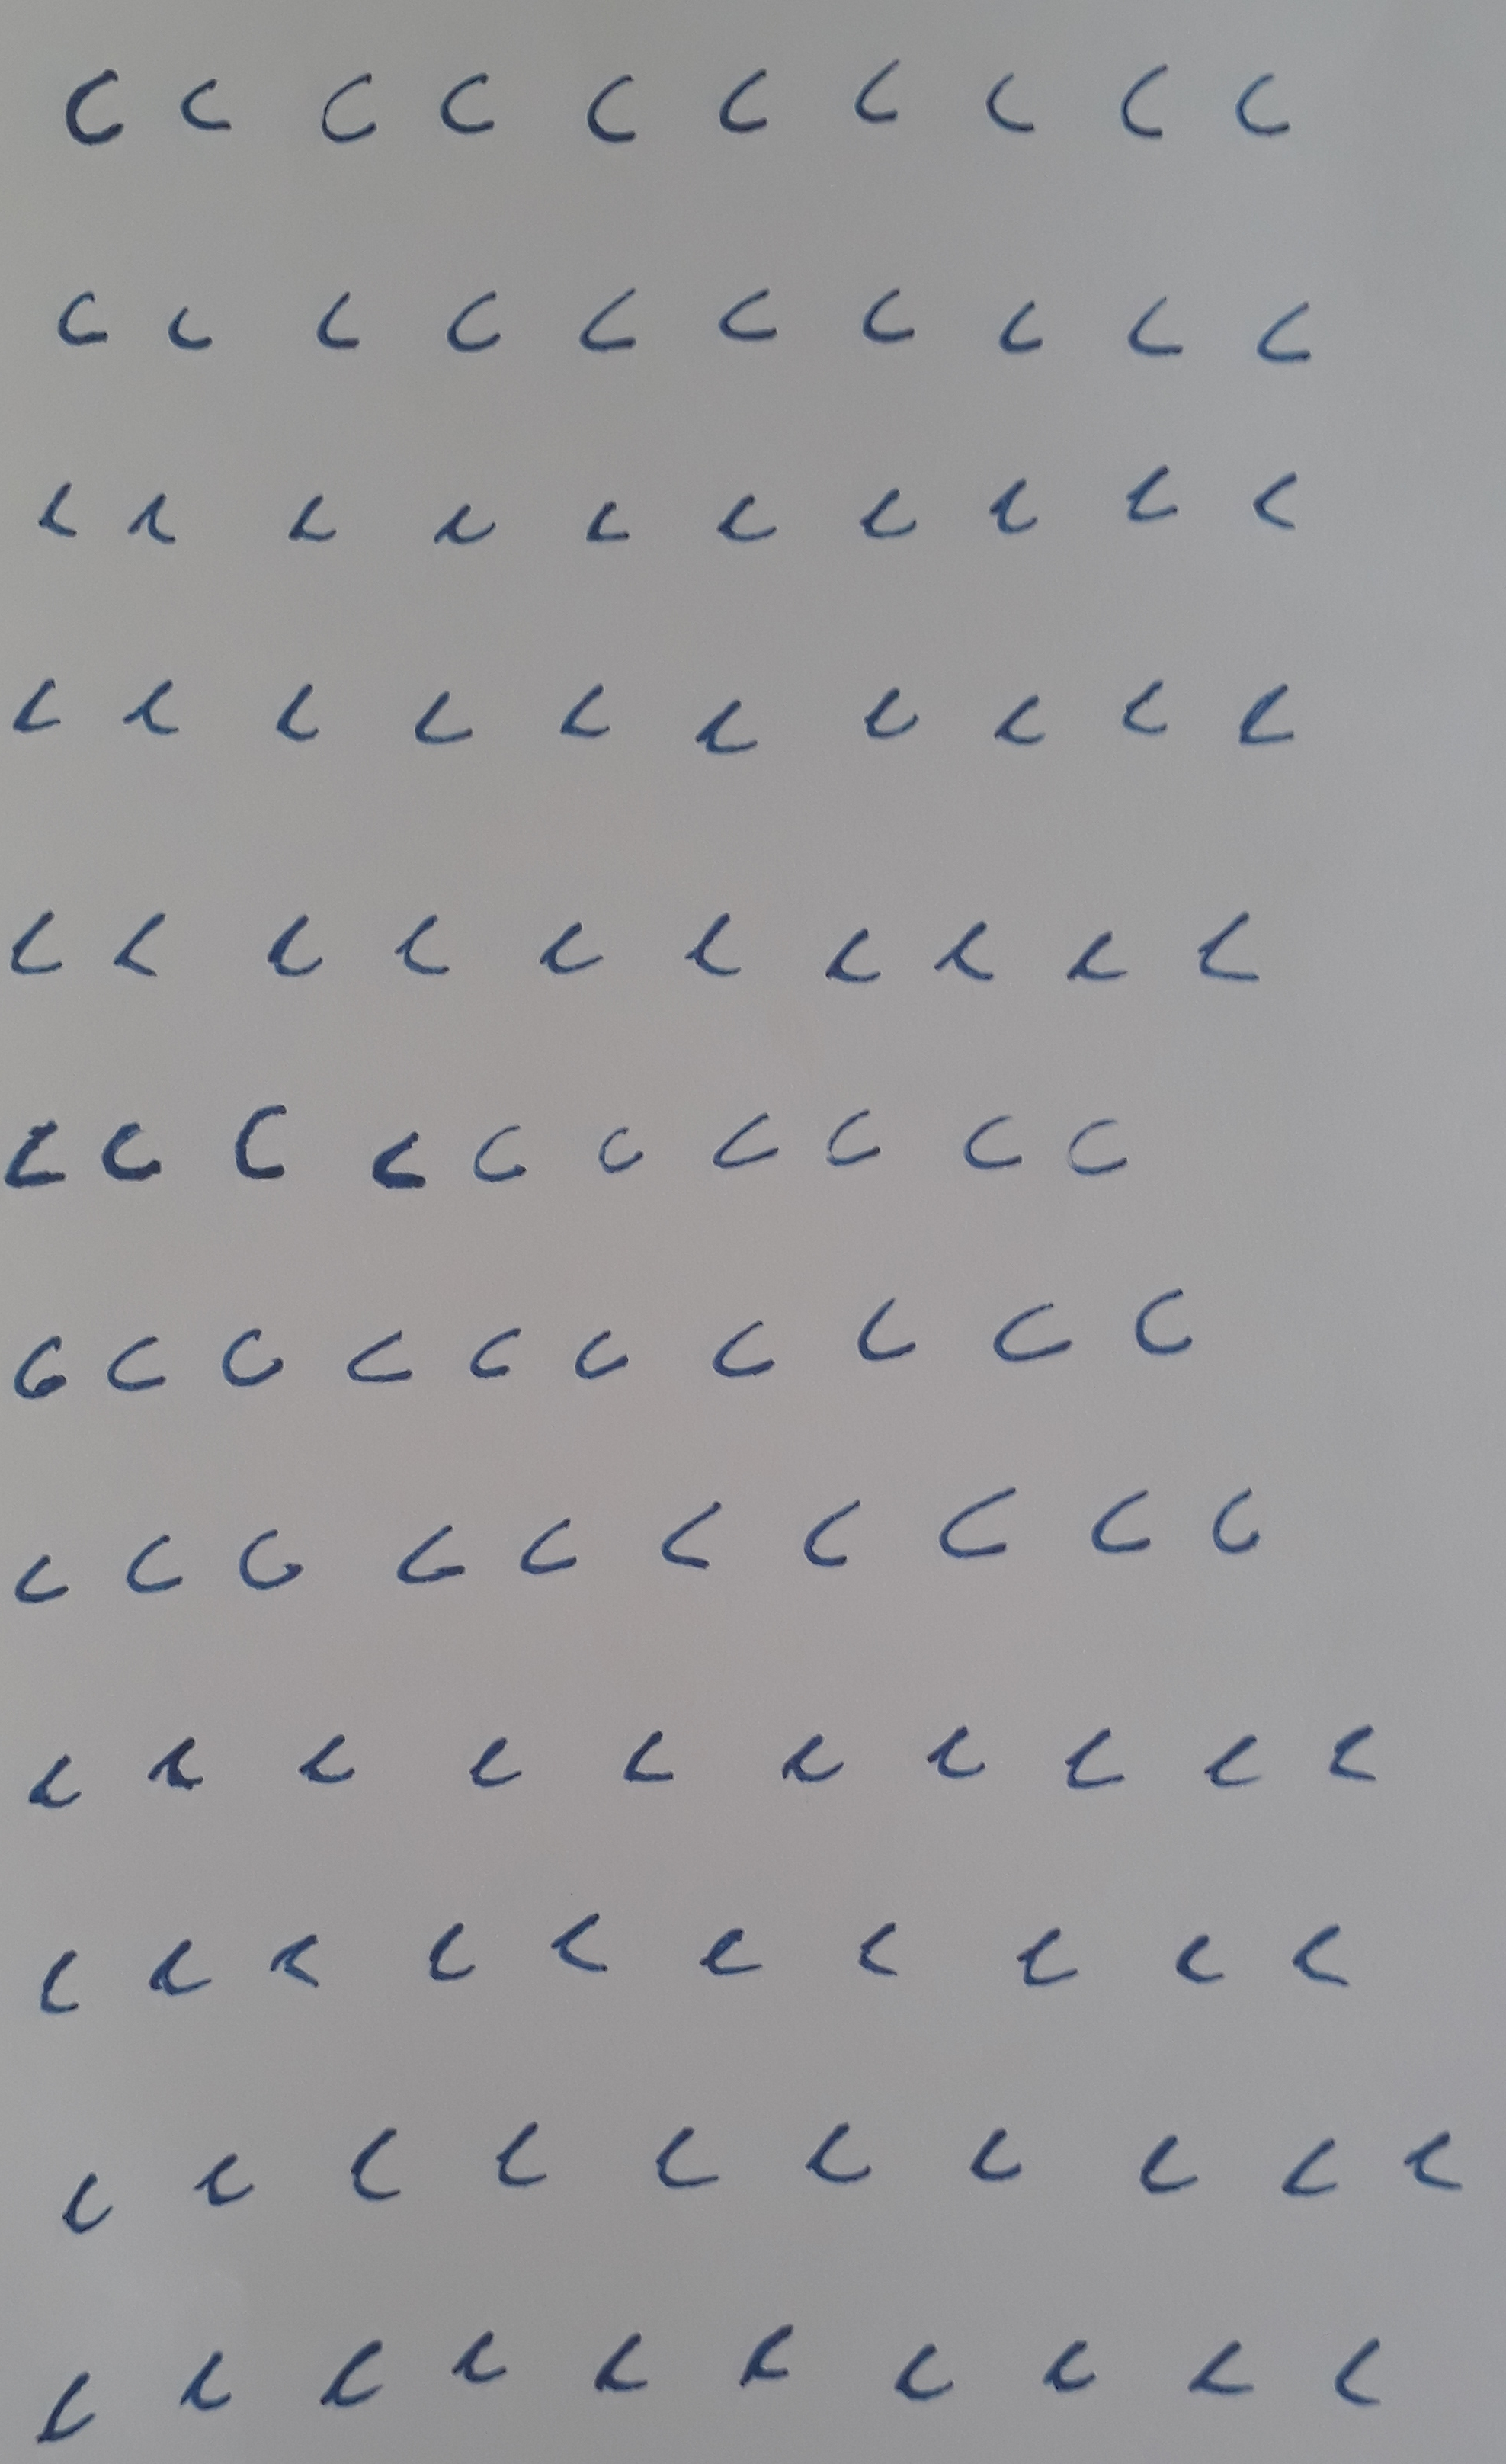 c c c c c c c c c c
c c c c c c c c c c
c c c c c c c c c c
c c c c c c c c c c
c c c c c c c c c c
c c c c c c c c c c
c c c c c c c c c c
c c c c c c c c c c
c c c c c c c c c c
c c c c c c c c c c
c c c c c c c c c c
c c c c c c c c c c